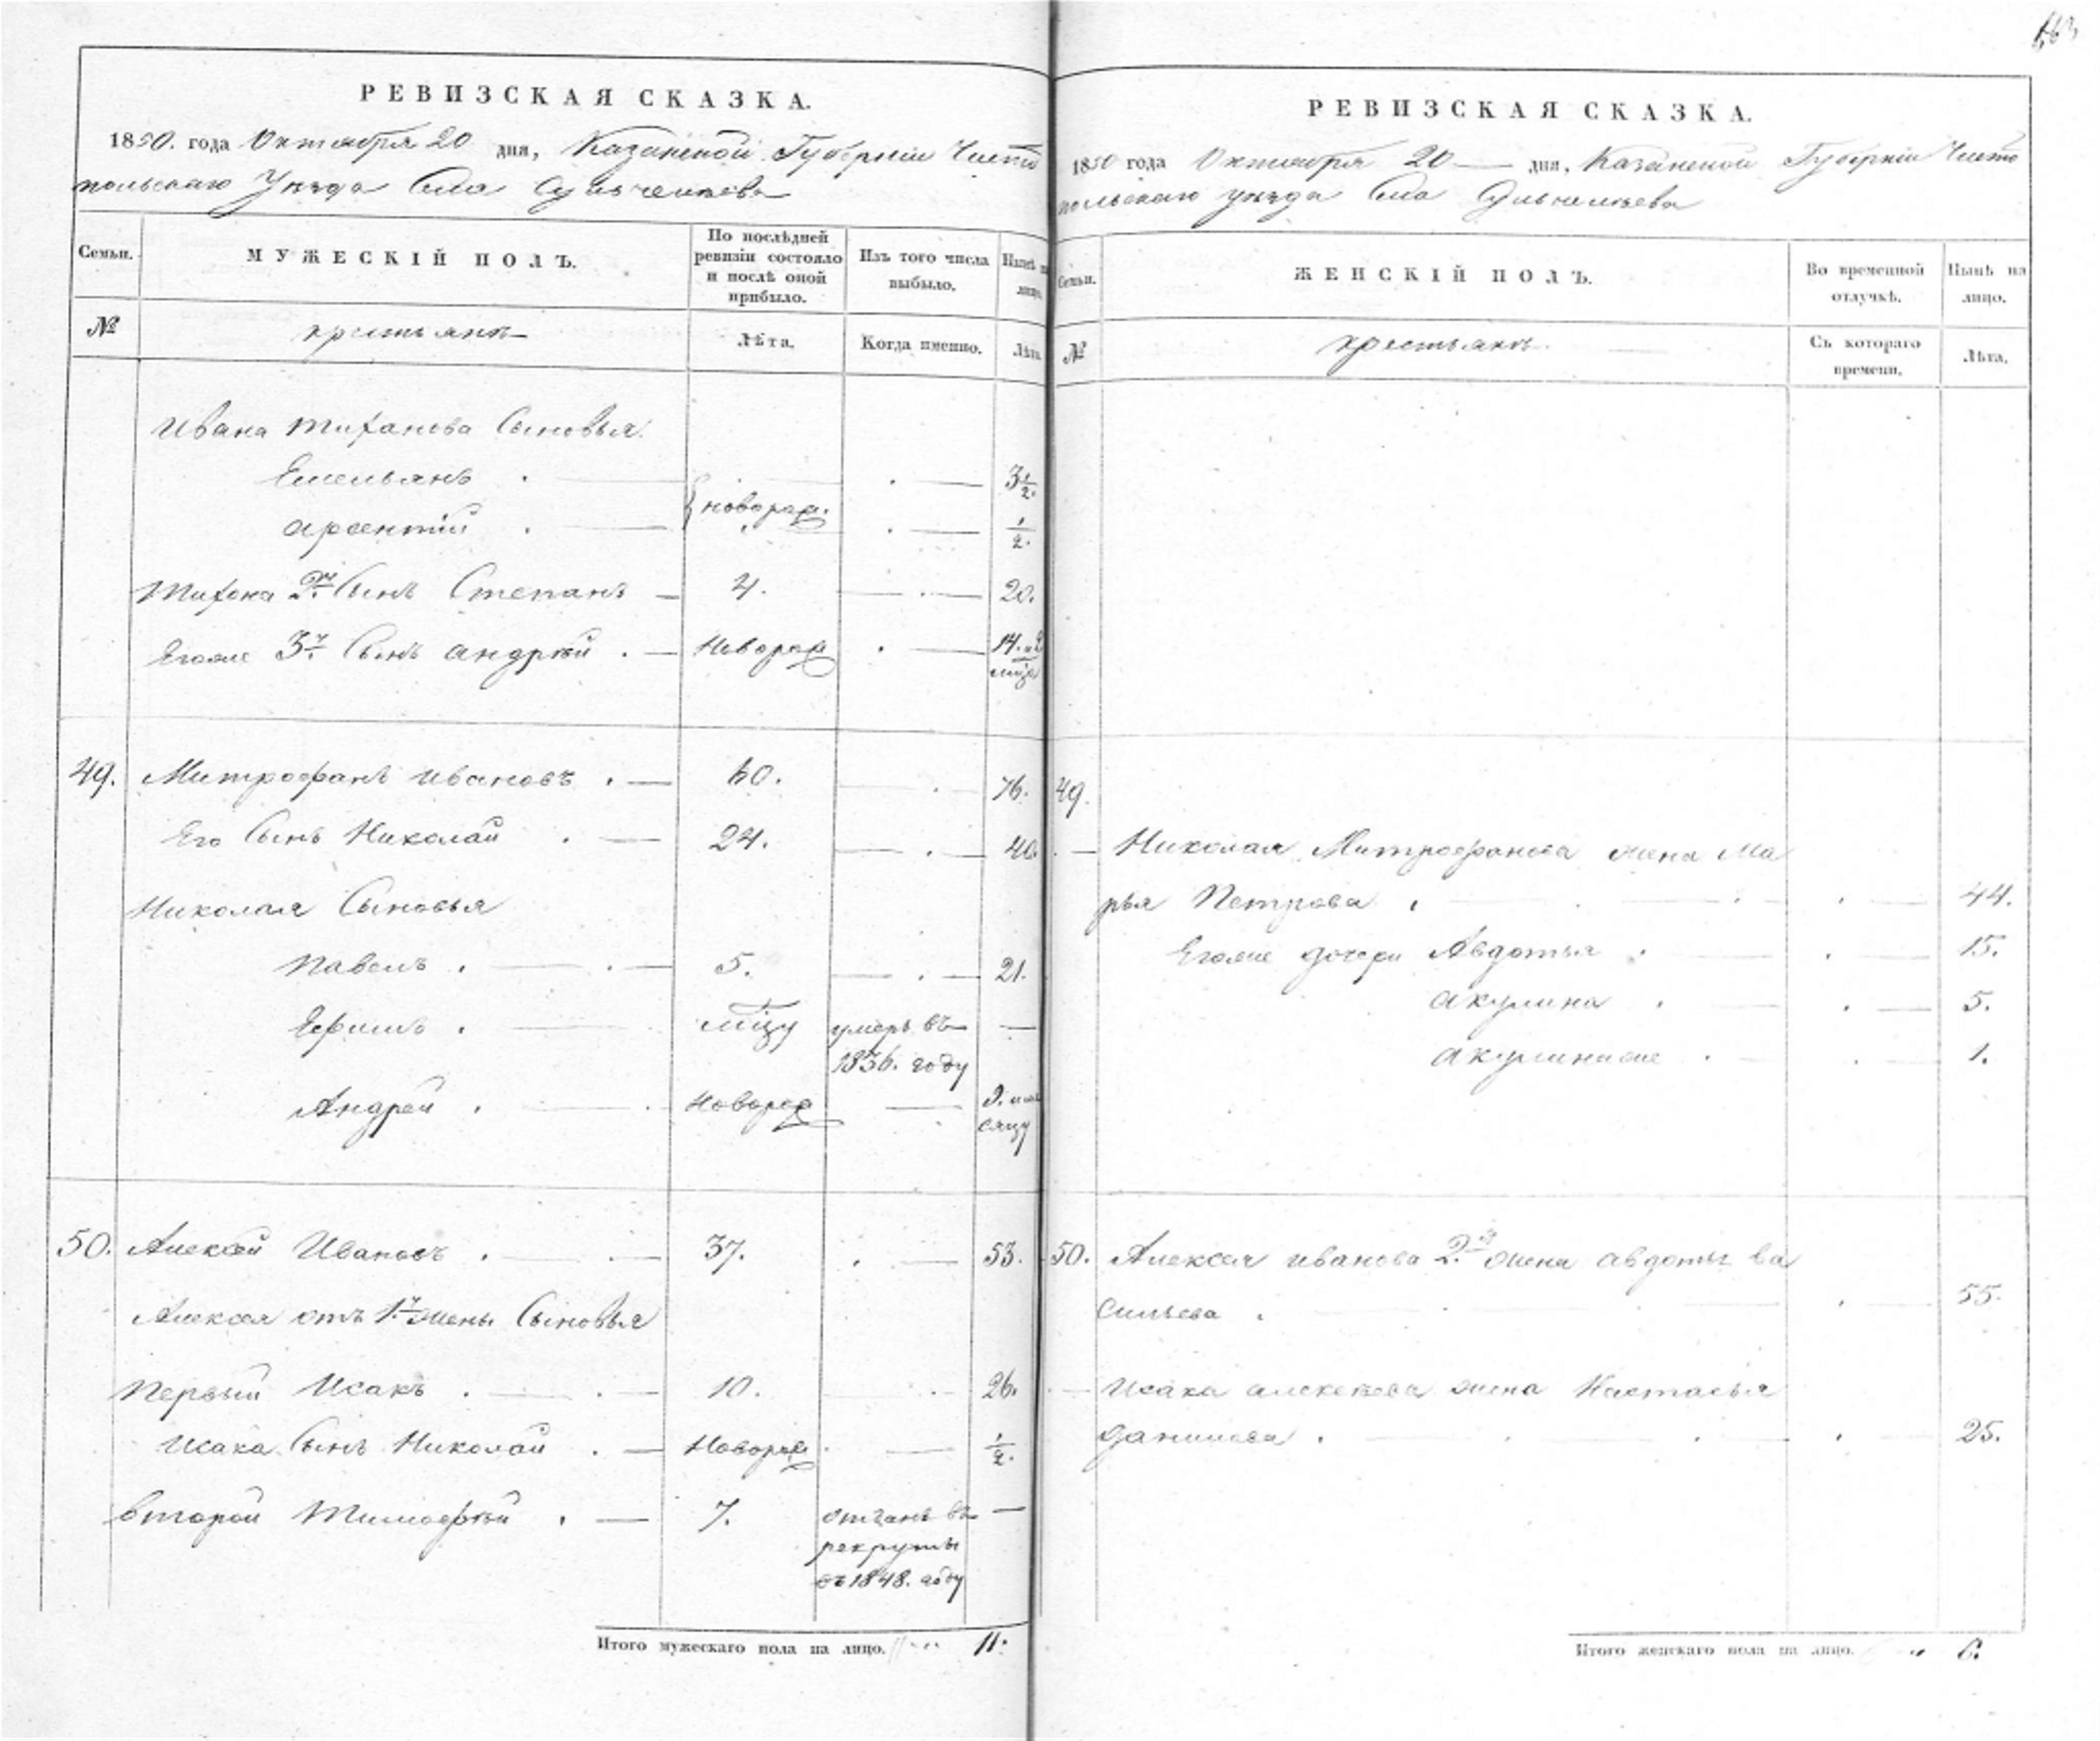 РЕВИЗСКАЯ СКАЗКА.
1850. года Октября 20 дня, Казанской Губерніи Чисто
польскаго Уѣзда Села
Семьи.
МУЖЕСКІЙ ПОЛЪ.
По послѣдней ревизіи состояло и послѣ оной прибыло.
Изъ того числа выбыло.
Нынѣ на лицо.
№
крестьянъ
Лѣта.
Когда именно.
Лѣта.
Ивана Тифанова Сыновья
Емельянъ . — — . — 3 1/2.
Арсентій . — {новорож. . — 1/2.
Тифона 2й. Сынъ Степанъ — 4. — . — 20.
Егоже 3й. Сынъ Андрѣй . — Новорож . — 14. и 2
мѣц
49. Митрофанъ Ивановъ . — 60. — . — 76.
Его Сынъ Николай . — 24. — . — 40.
Николая Сыновья
Павелъ . — . — 5. — . — 21.
Ефимъ . — мѣцу умеръ въ —
1836. году
Андрей . — . Новорож — 9. мѣ
сяцу
50. Алексей Ивановъ . — — 37. . — 53.
Алексея отъ 1й. жены Сыновья
Первый Исакъ . — . — 10. . — 26.
Исака Сынъ Николай . — Новорож . — 1/2.
Второй Тимофѣй . — 7. отданъ въ —
рекруты
въ 1848. году
Итого мужескаго пола на лицо. 11.
РЕВИЗСКАЯ СКАЗКА.
1850 года Октября 20 — дня, Казанской Губерніи Чисто
польскаго уѣзда Села
Семьи.
ЖЕНСКІЙ ПОЛЪ.
Во временной отлучкѣ.
Нынѣ на лицо.
№
крестьянъ
Съ котораго времени.
Лѣта.
49.
— Николая Митрофанова жена Ма
рья Петрова . — . — . — 44.
Егоже дочери Авдотья . — . — 15.
Акулина . — . — 5.
Акулинаже . — . — 1.
50. Алексея Иванова 2.я жена Авдотья Ва
сильева . — . — 55.
— Исака Алексеева жена Настасья
Данилова . — . — . — 25.
Итого женскаго пола на лицо. 6.